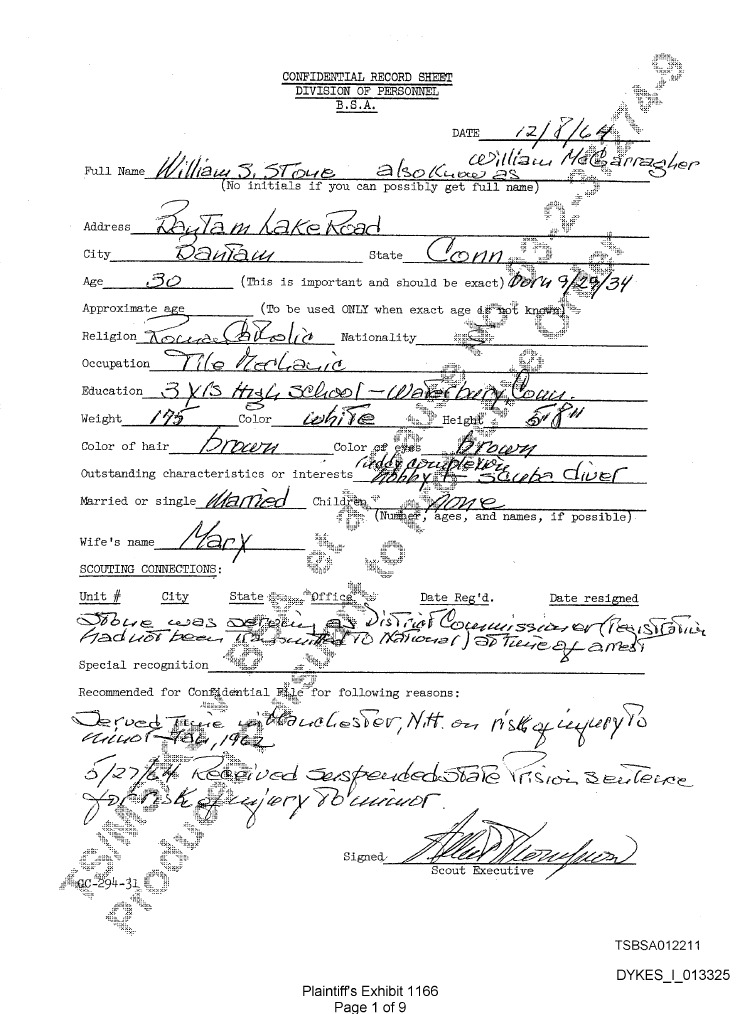 CONFIDENTIAL RECORD SHEET
DIVISION OF PERSONNEL
B.S.A.
DATE 12/8/64
Full Name William S. Stone also Know as William McGarragher
(No initials if you can possibly get full name)
Address Bantam Lake Road
City Bantam State Conn
Age 30 (This is important and should be exact) born 9/29/34
Approximate age (To be used ONLY when exact age is not known)
Religion Roman Catholic Nationality
Occupation Tile Mechanic
Education 3 yrs High School - Waterbury, Conn.
Weight 175 Color white Height 5'8"
Color of hair brown Color of eyes brown
Outstanding characteristics or interests ruddy complexion hobby - scuba diver
Married or single Married Children none
(Number, ages, and names, if possible)
Wife's name Mary
SCOUTING CONNECTIONS:
Unit # City State Office Date Reg'd. Date resigned
Stone was serving as District Commissioner (registration
had not been transmitted to National) at time of arrest
Special recognition
Recommended for Confidential File for following reasons:
Served Time in Manchester, N.H. on risk of injury To
minor 1962
5/27/64 Received suspended State Prision sentence
for risk of injury To minor.
Signed
Scout Executive
GC-294-31
TSBSA012211
DYKES_I_013325
Plaintiff's Exhibit 1166
Page 1 of 9